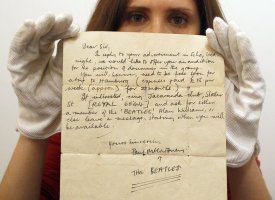 Dear Sir,
In reply to your advertisement in Echo, Wed.
night, we would like to offer you an audition
for the position of drummer in the group.
You will, however, need to be free soon for
trip to Hamburg (expenses paid £18 per
week (approx.) for 2 months.)
If interested ring Jacaranda club, Slater
St [ROYAL 6544] and ask for either
a member of the 'BEATLES', Alan Williams, or
else leave a message, stating when you will
be available.
Yours Sincerely,
Paul McCartney
THE BEATLES.